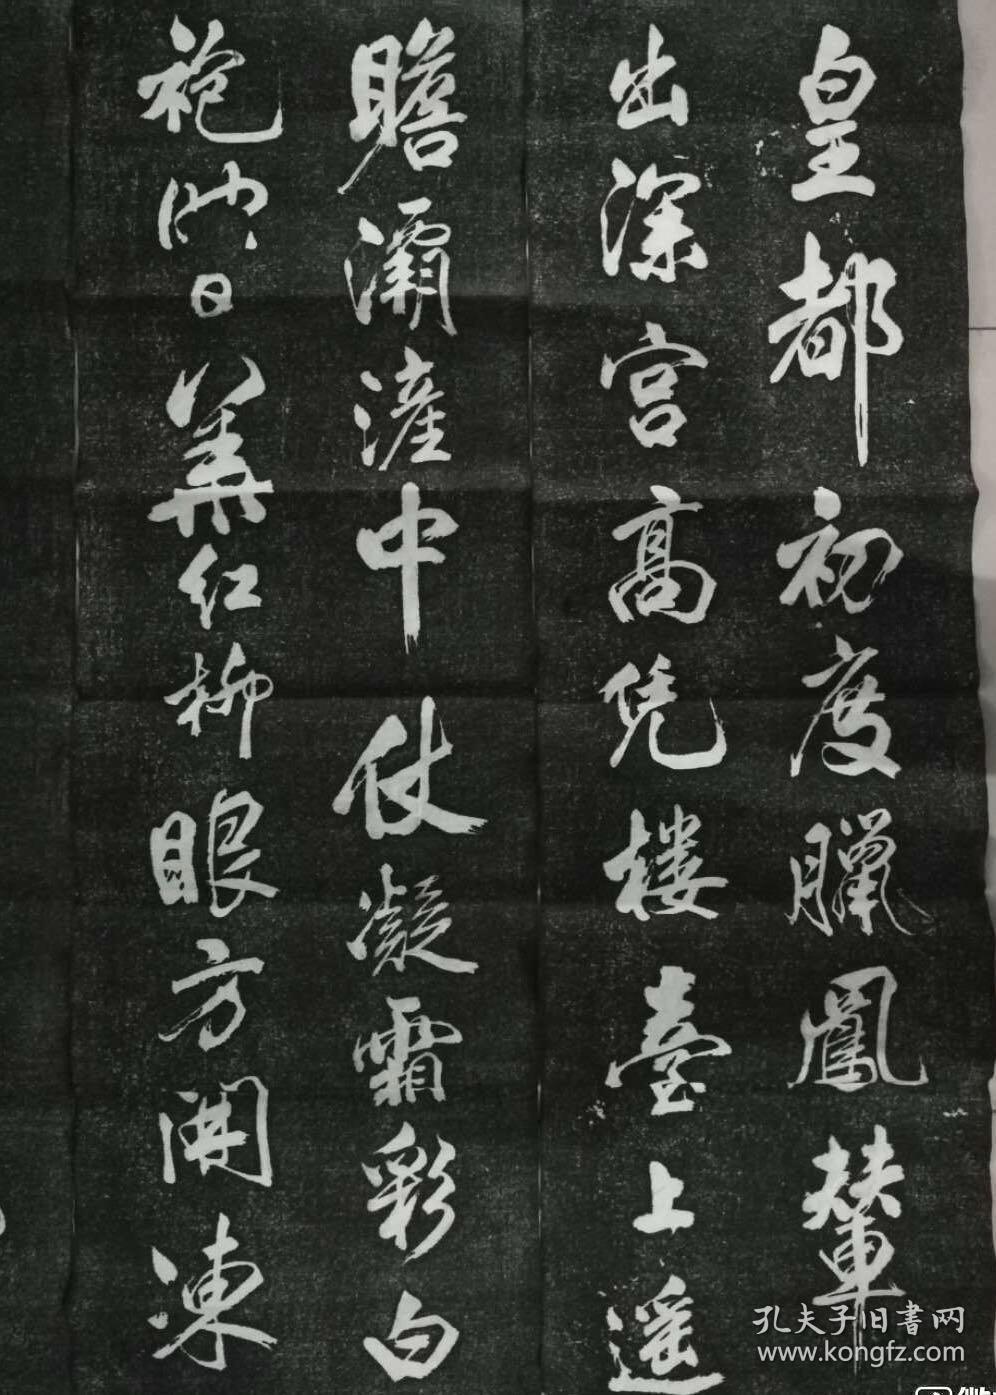 皇都初度臘鳳輦
出深宮高凭楼臺上遥
瞻灞滻中仗凝霜彩白
袍映日華红柳眼方開凍
孔夫子旧書网
www.kongfz.com